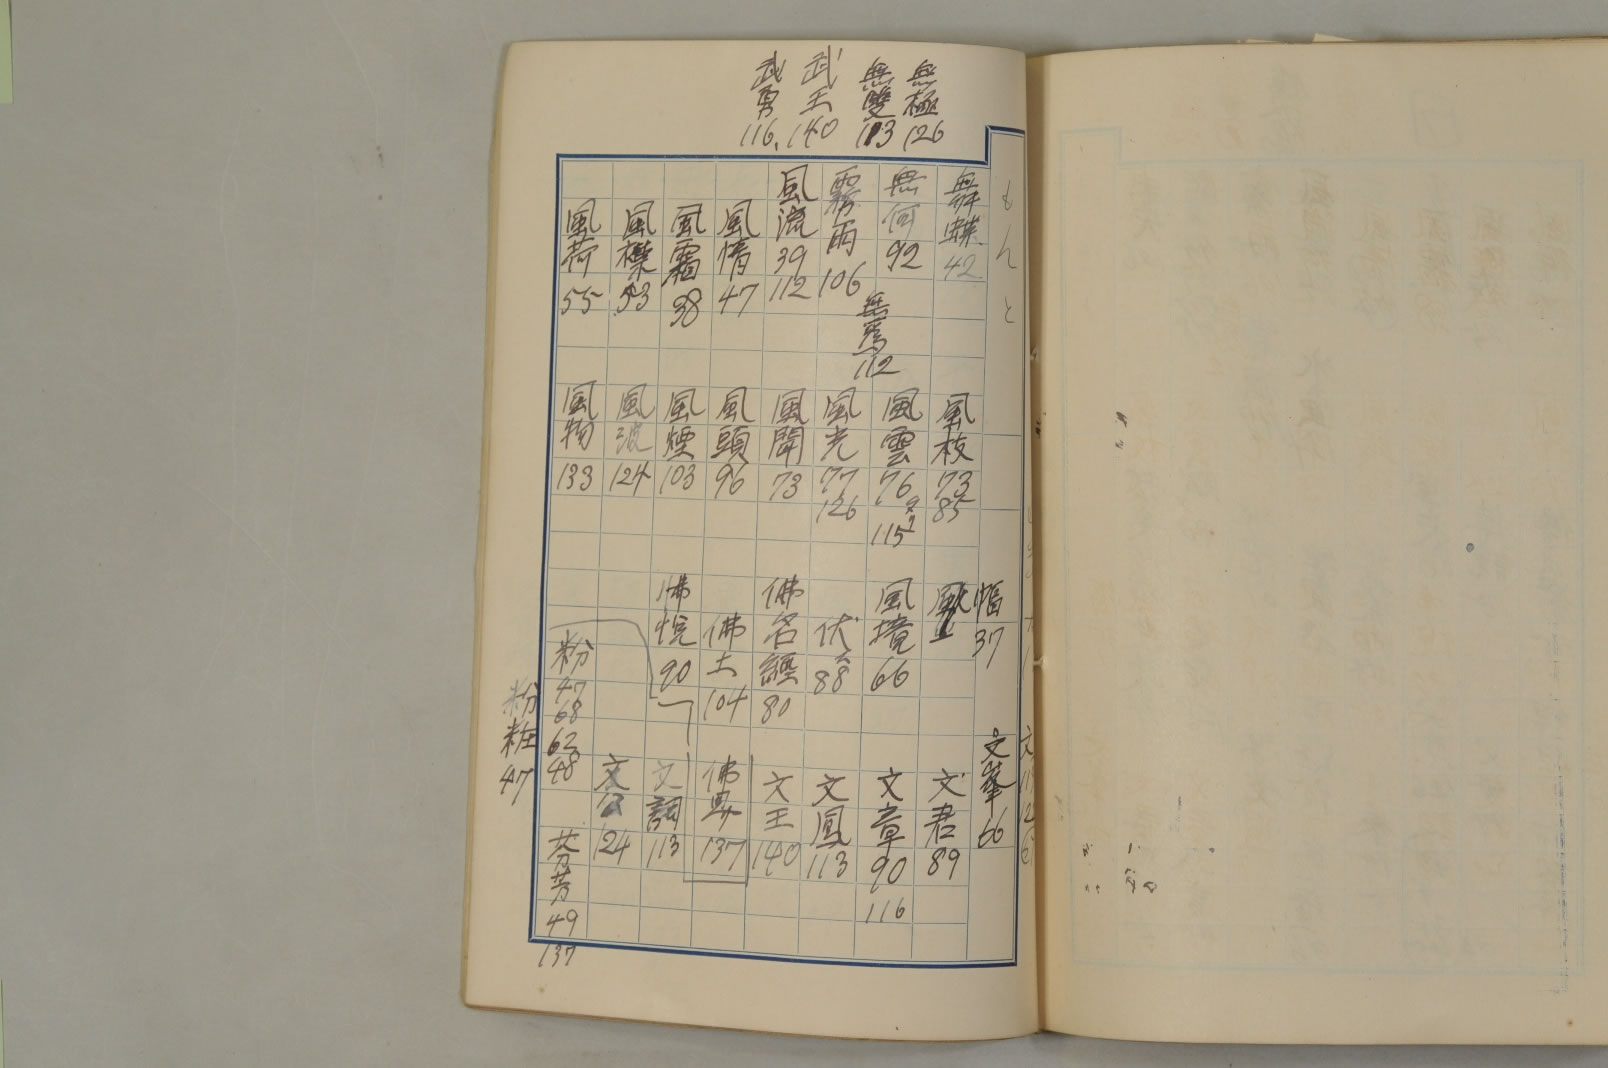 無極 126
無雙 113
武王 140
武勇 116
舞蝶 42
無何 92
無為 112
霧雨 106
風流 39 112
風情 47
風霜 38
風櫟 53
風荷 55
風枝 73 85
風雲 76 115
風光 77 126
風聞 73
風頭 96
風煙 103
風波 124
風物 133
幅 37
風境 66
伏 88
佛名經 80
佛土 104
佛悦 90
粉 47 68 62 48
粉粧 47
文峯 66
文君 89
文章 90 116
文鳳 113
文王 140
佛典 137
文詞 113
文公 124
芬芳 49 137